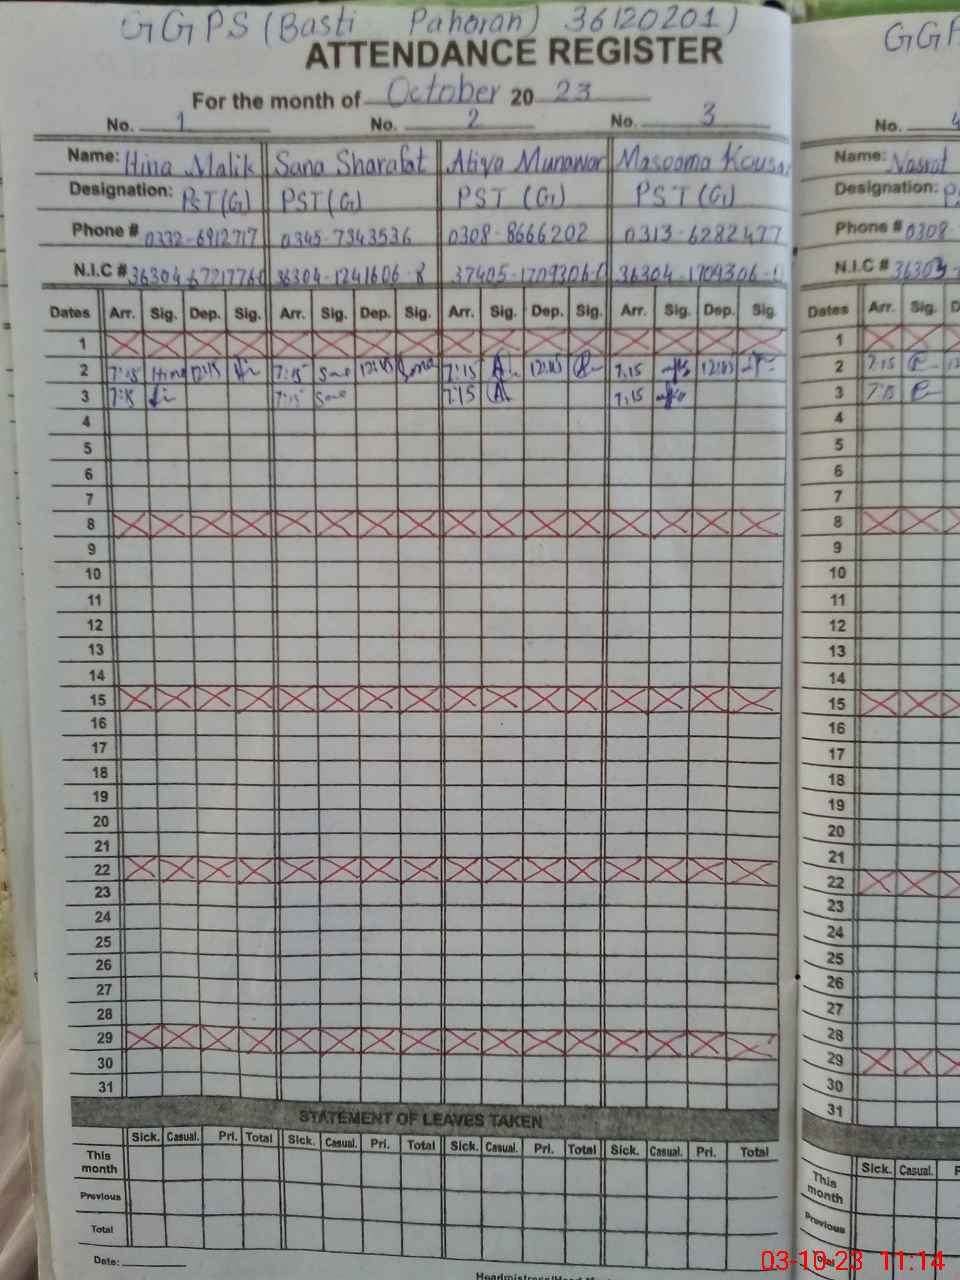 GGPS (Basti Pahoran) 36120201)
GGP
ATTENDANCE REGISTER
For the month of October 20 23
No. 1 No. 2 No. 3
No. 4
Name: Hina Malik Sana Sharafat Atiya Munawar Masooma Kousar
Name: Nasrat
Designation: PST(G) PST(G) PST (G) PST (G)
Designation:
Phone # 0332-6912717 0345-7343536 0308-8666202 0313-6282477
Phone # 0308-
N.I.C # 36304-6721776-0 36304-1241606-8 37405-1709306-0 36304-1709306-0
N.I.C # 36303-
Dates Arr. Sig. Dep. Sig. Arr. Sig. Dep. Sig. Arr. Sig. Dep. Sig. Arr. Sig. Dep. Sig.
Dates Arr. Sig. D
1 1
2 7:15 Hina 12:45 7:15 Sana 12:45 Sana 7:15 A 12:45 7:15 12:45
2 7:15
3 7:15 7:15 Sana 7:15 A 7:15
3 7:15
4 4
5 5
6 6
7 7
8 8
9 9
10 10
11 11
12 12
13 13
14 14
15 15
16 16
17 17
18 18
19 19
20 20
21 21
22 22
23 23
24 24
25 25
26 26
27 27
28 28
29 29
30 30
31 31
STATEMENT OF LEAVES TAKEN
Sick. Casual. Pri. Total Sick. Casual. Pri. Total Sick. Casual. Pri. Total Sick. Casual. Pri. Total
Sick. Casual. P
This month
This month
Previous
Previous
Total
Total
Date:
03-10-23 11:14